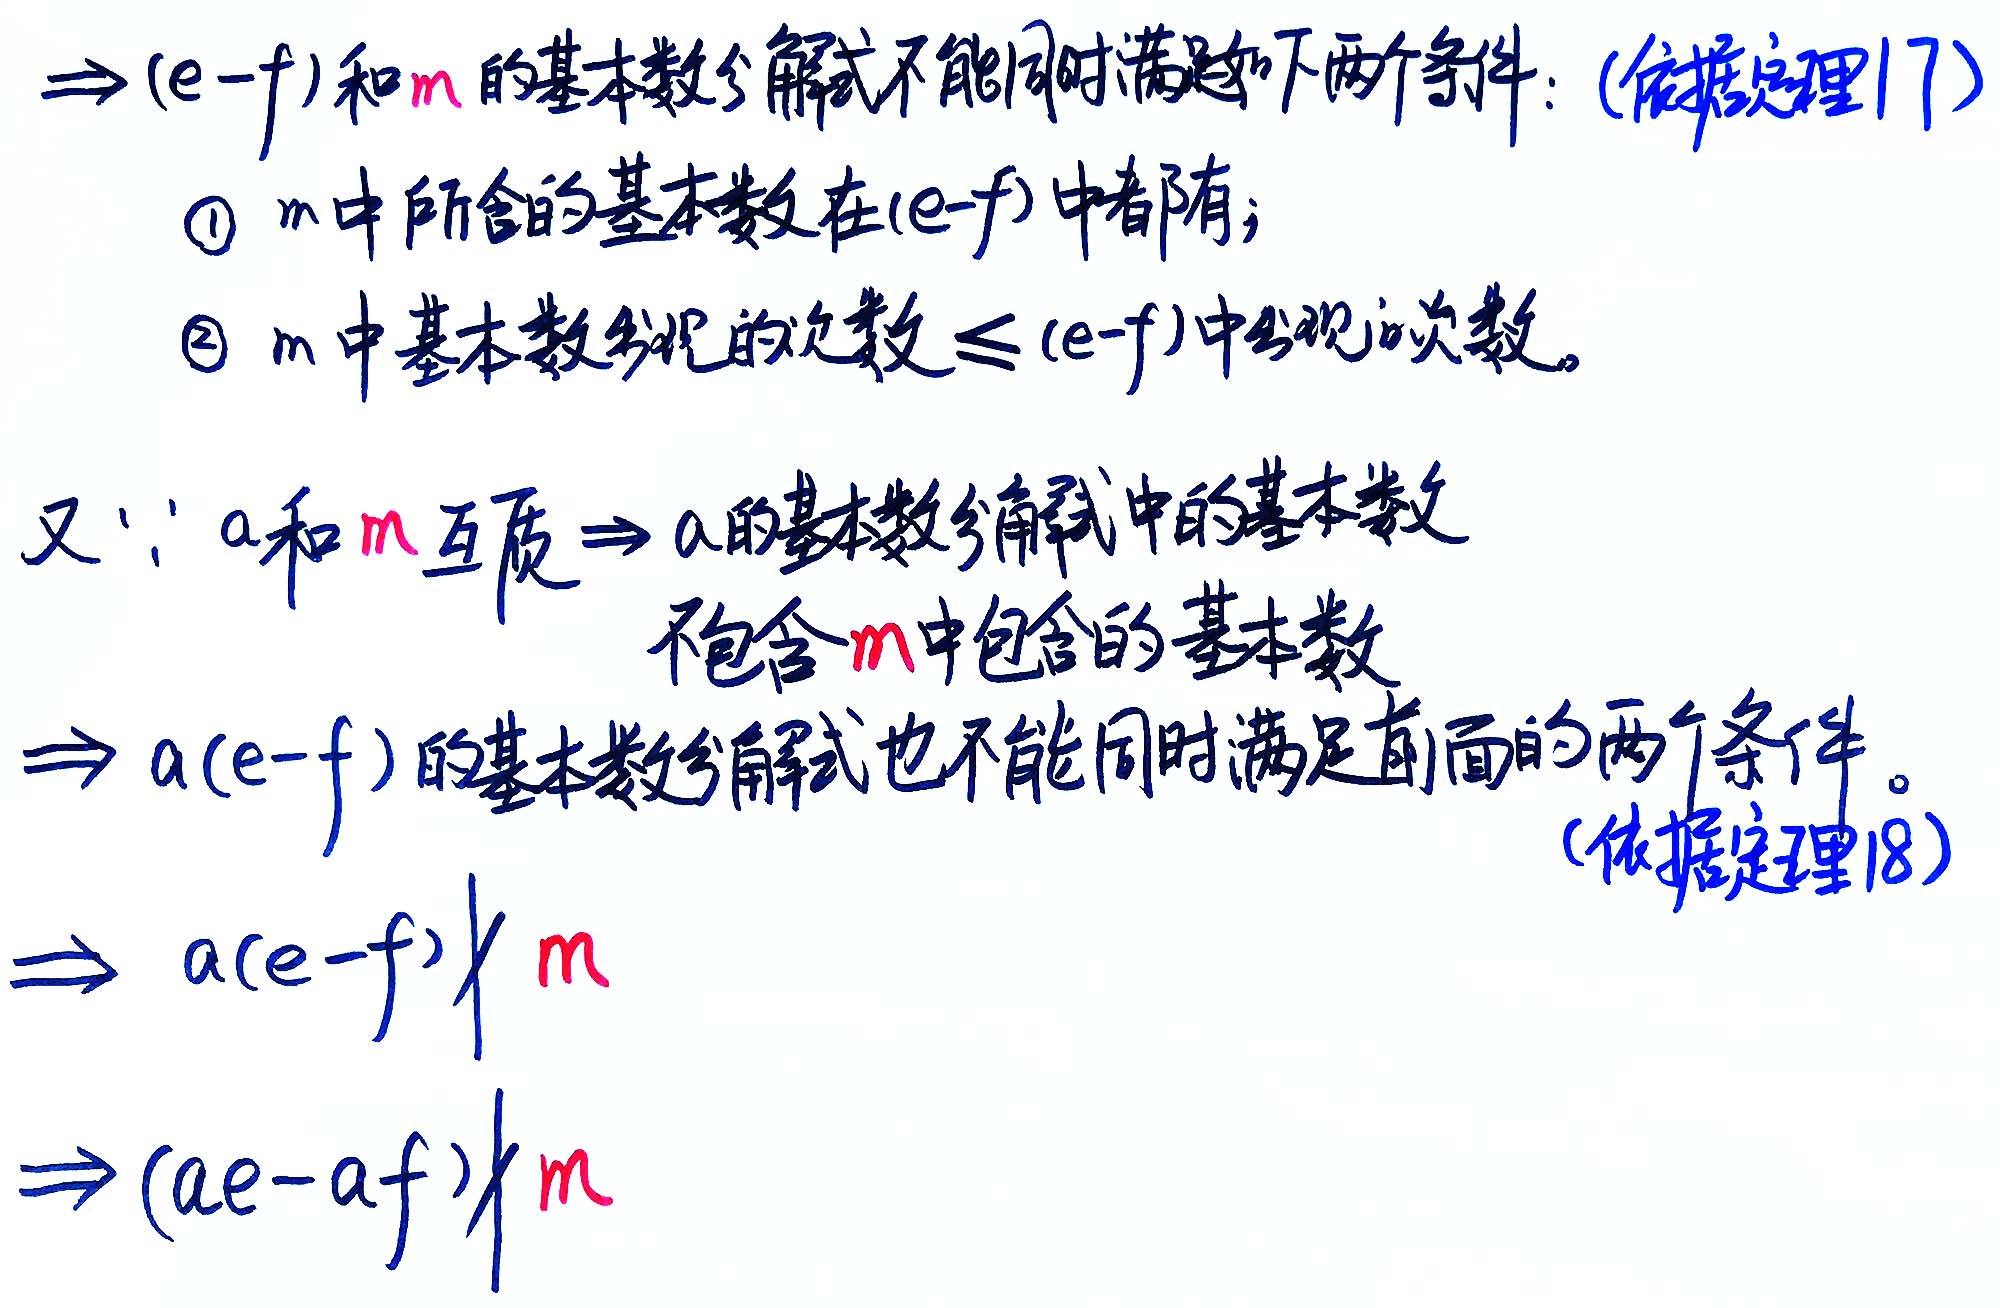 ⇒(e-f)和m的基本数分解式不能同时满足如下两个条件:(依据定理17)
① m中所含的基本数在(e-f)中都有;
② m中基本数出现的次数≤(e-f)中出现的次数。
又∵a和m互质⇒a的基本数分解式中的基本数
不包含m中包含的基本数
⇒a(e-f)的基本数分解式也不能同时满足前面的两个条件。
(依据定理18)
⇒ a(e-f)∤m
⇒(ae-af)∤m